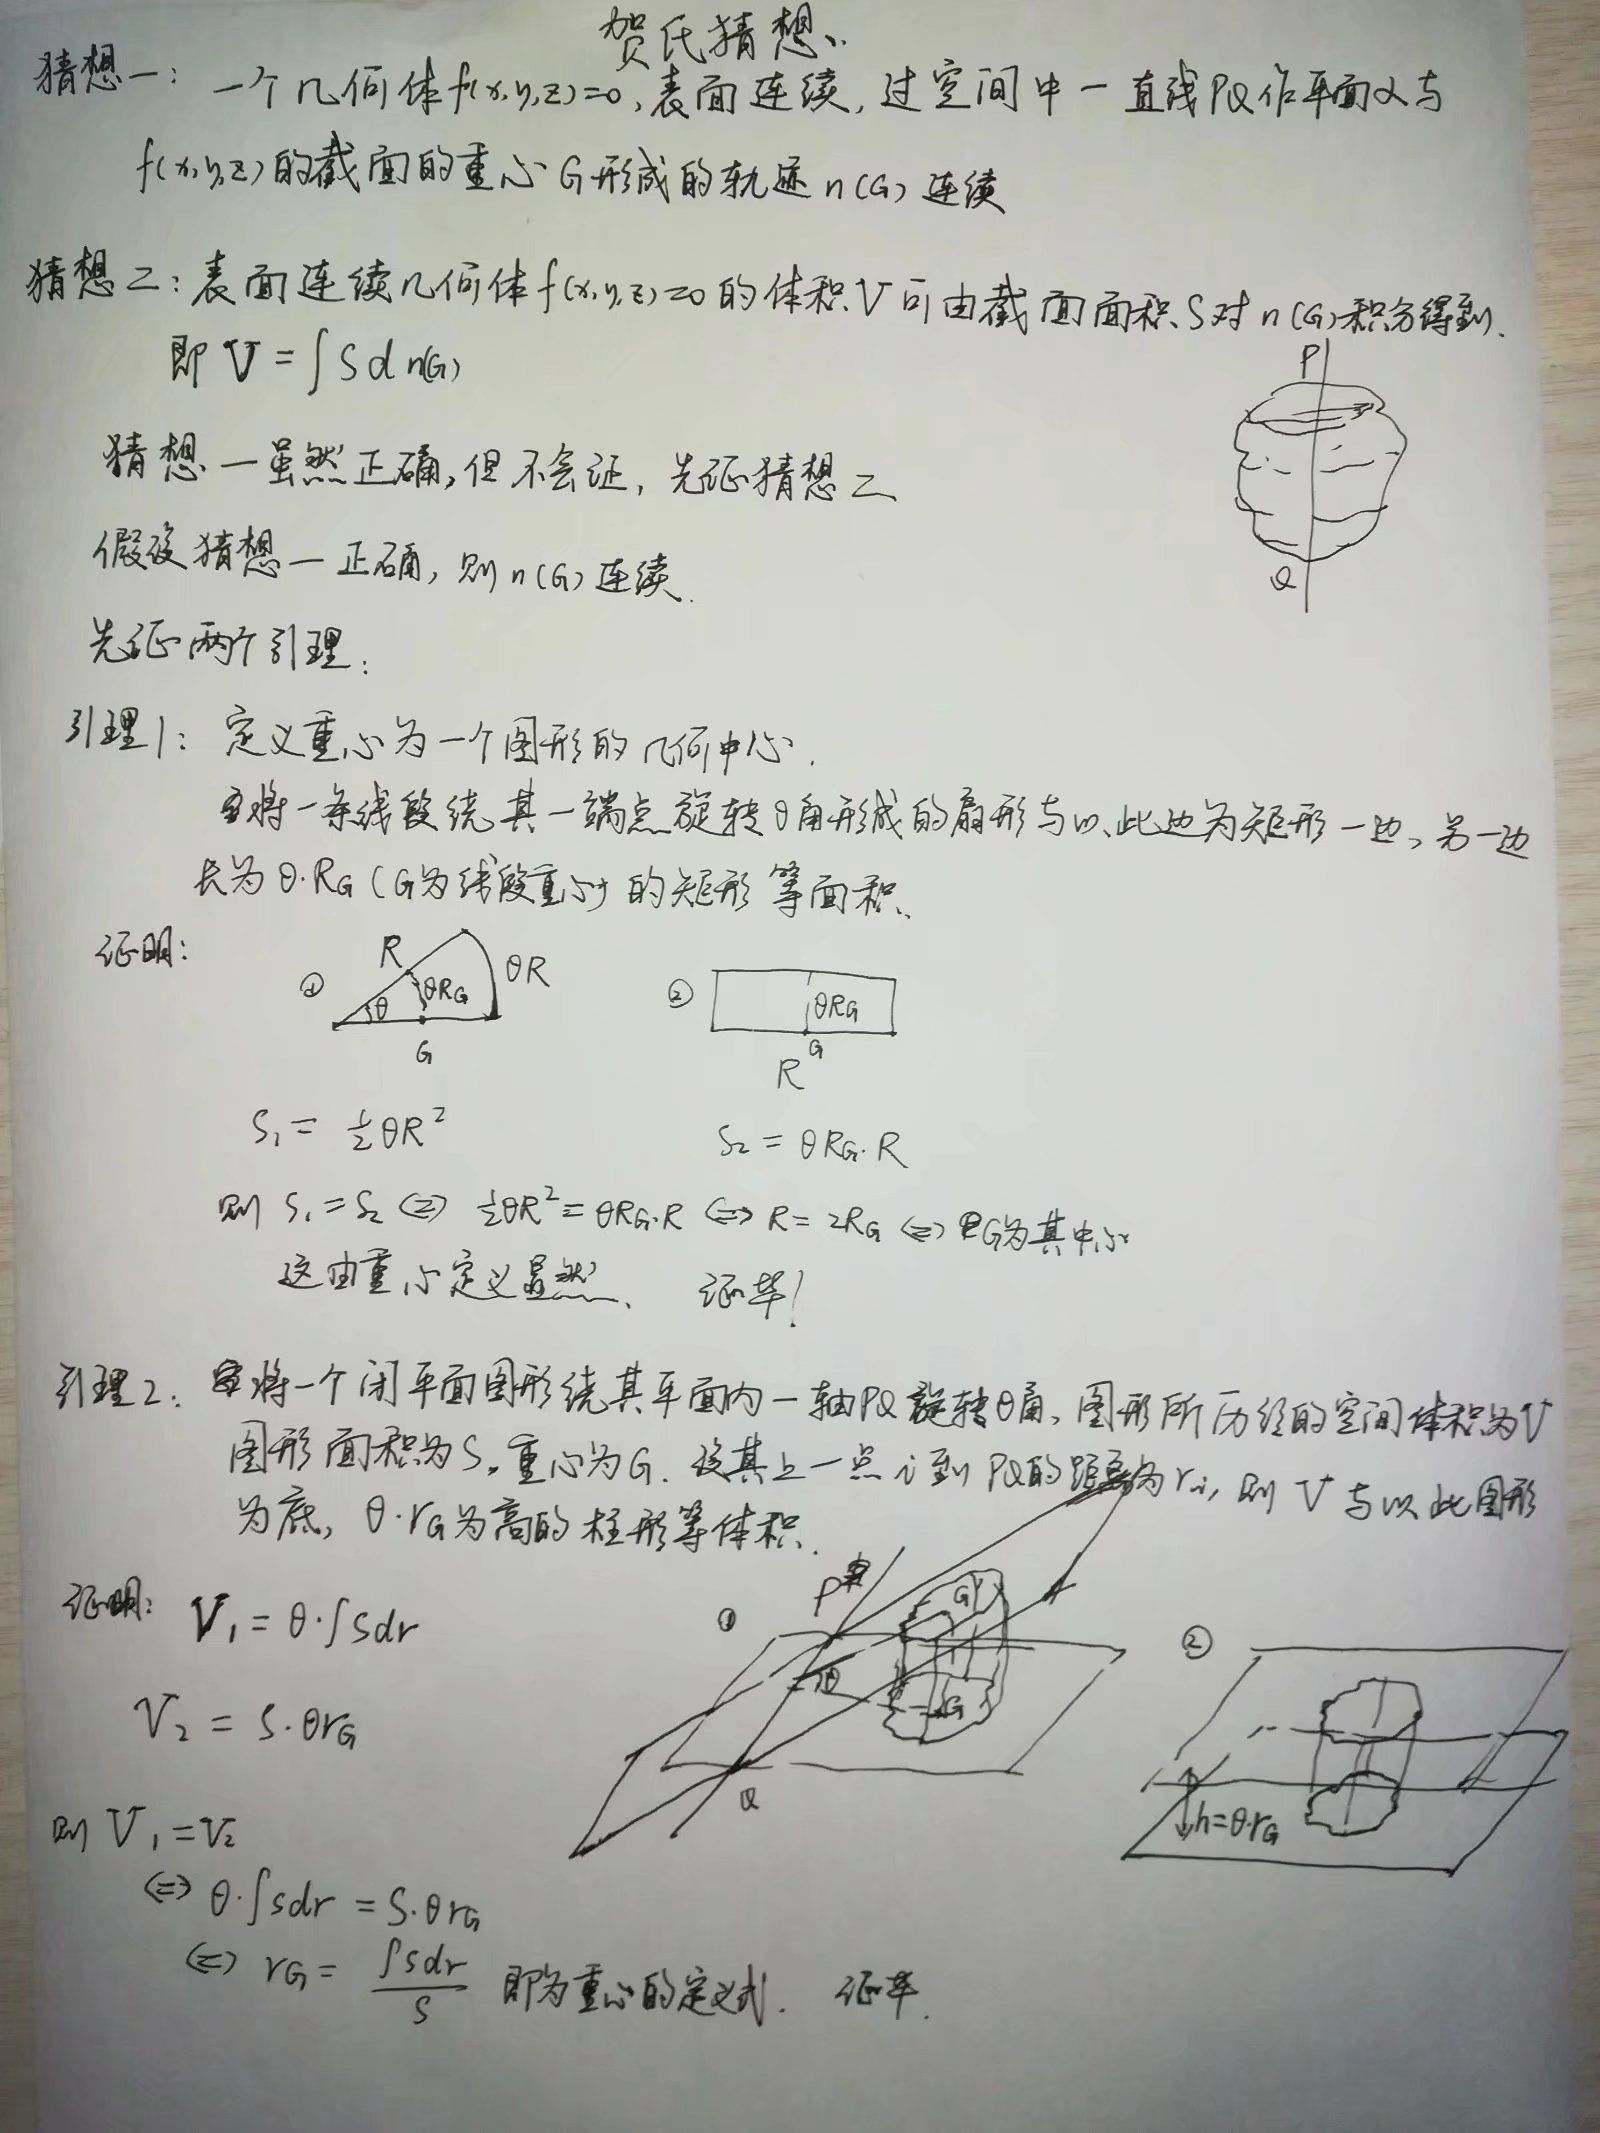 贺氏猜想
猜想一: 一个几何体f(x,y,z)=0,表面连续,过空间中一直线PQ作平面α与
f(x,y,z)的截面的重心G形成的轨迹n(G)连续
猜想二: 表面连续几何体f(x,y,z)=0的体积V可由截面面积S对n(G)积分得到.
即 V = ∫S d n(G)
P
Q
猜想一虽然正确,但不会证,先证猜想二
假设猜想一正确,则n(G)连续.
先证两个引理:
引理1: 定义重心为一个图形的几何中心.
将一条线段绕其一端点旋转θ角形成的扇形与以此边为矩形一边、另一边
长为θ·RG(G为线段重心)的矩形等面积.
证明:
① R θ θRG θR G
② θRG G R
S₁ = ½θR²
S₂ = θRG·R
则 S₁=S₂ ⇔ ½θR²=θRG·R ⇔ R=2RG ⇔ G为其中心
这由重心定义显然. 证毕!
引理2: 将一个闭平面图形绕其平面内一轴PQ旋转θ角,图形所历经的空间体积为V
图形面积为S,重心为G.设其上一点i到PQ的距离为ri,则V与以此图形
为底,θ·rG为高的柱形等体积.
证明: V₁ = θ·∫sdr
① P θ G G Q
② h=θ·rG
V₂ = S·θrG
则 V₁=V₂
⇔ θ·∫sdr = S·θrG
⇔ rG = ∫sdr/S 即为重心的定义式. 证毕.